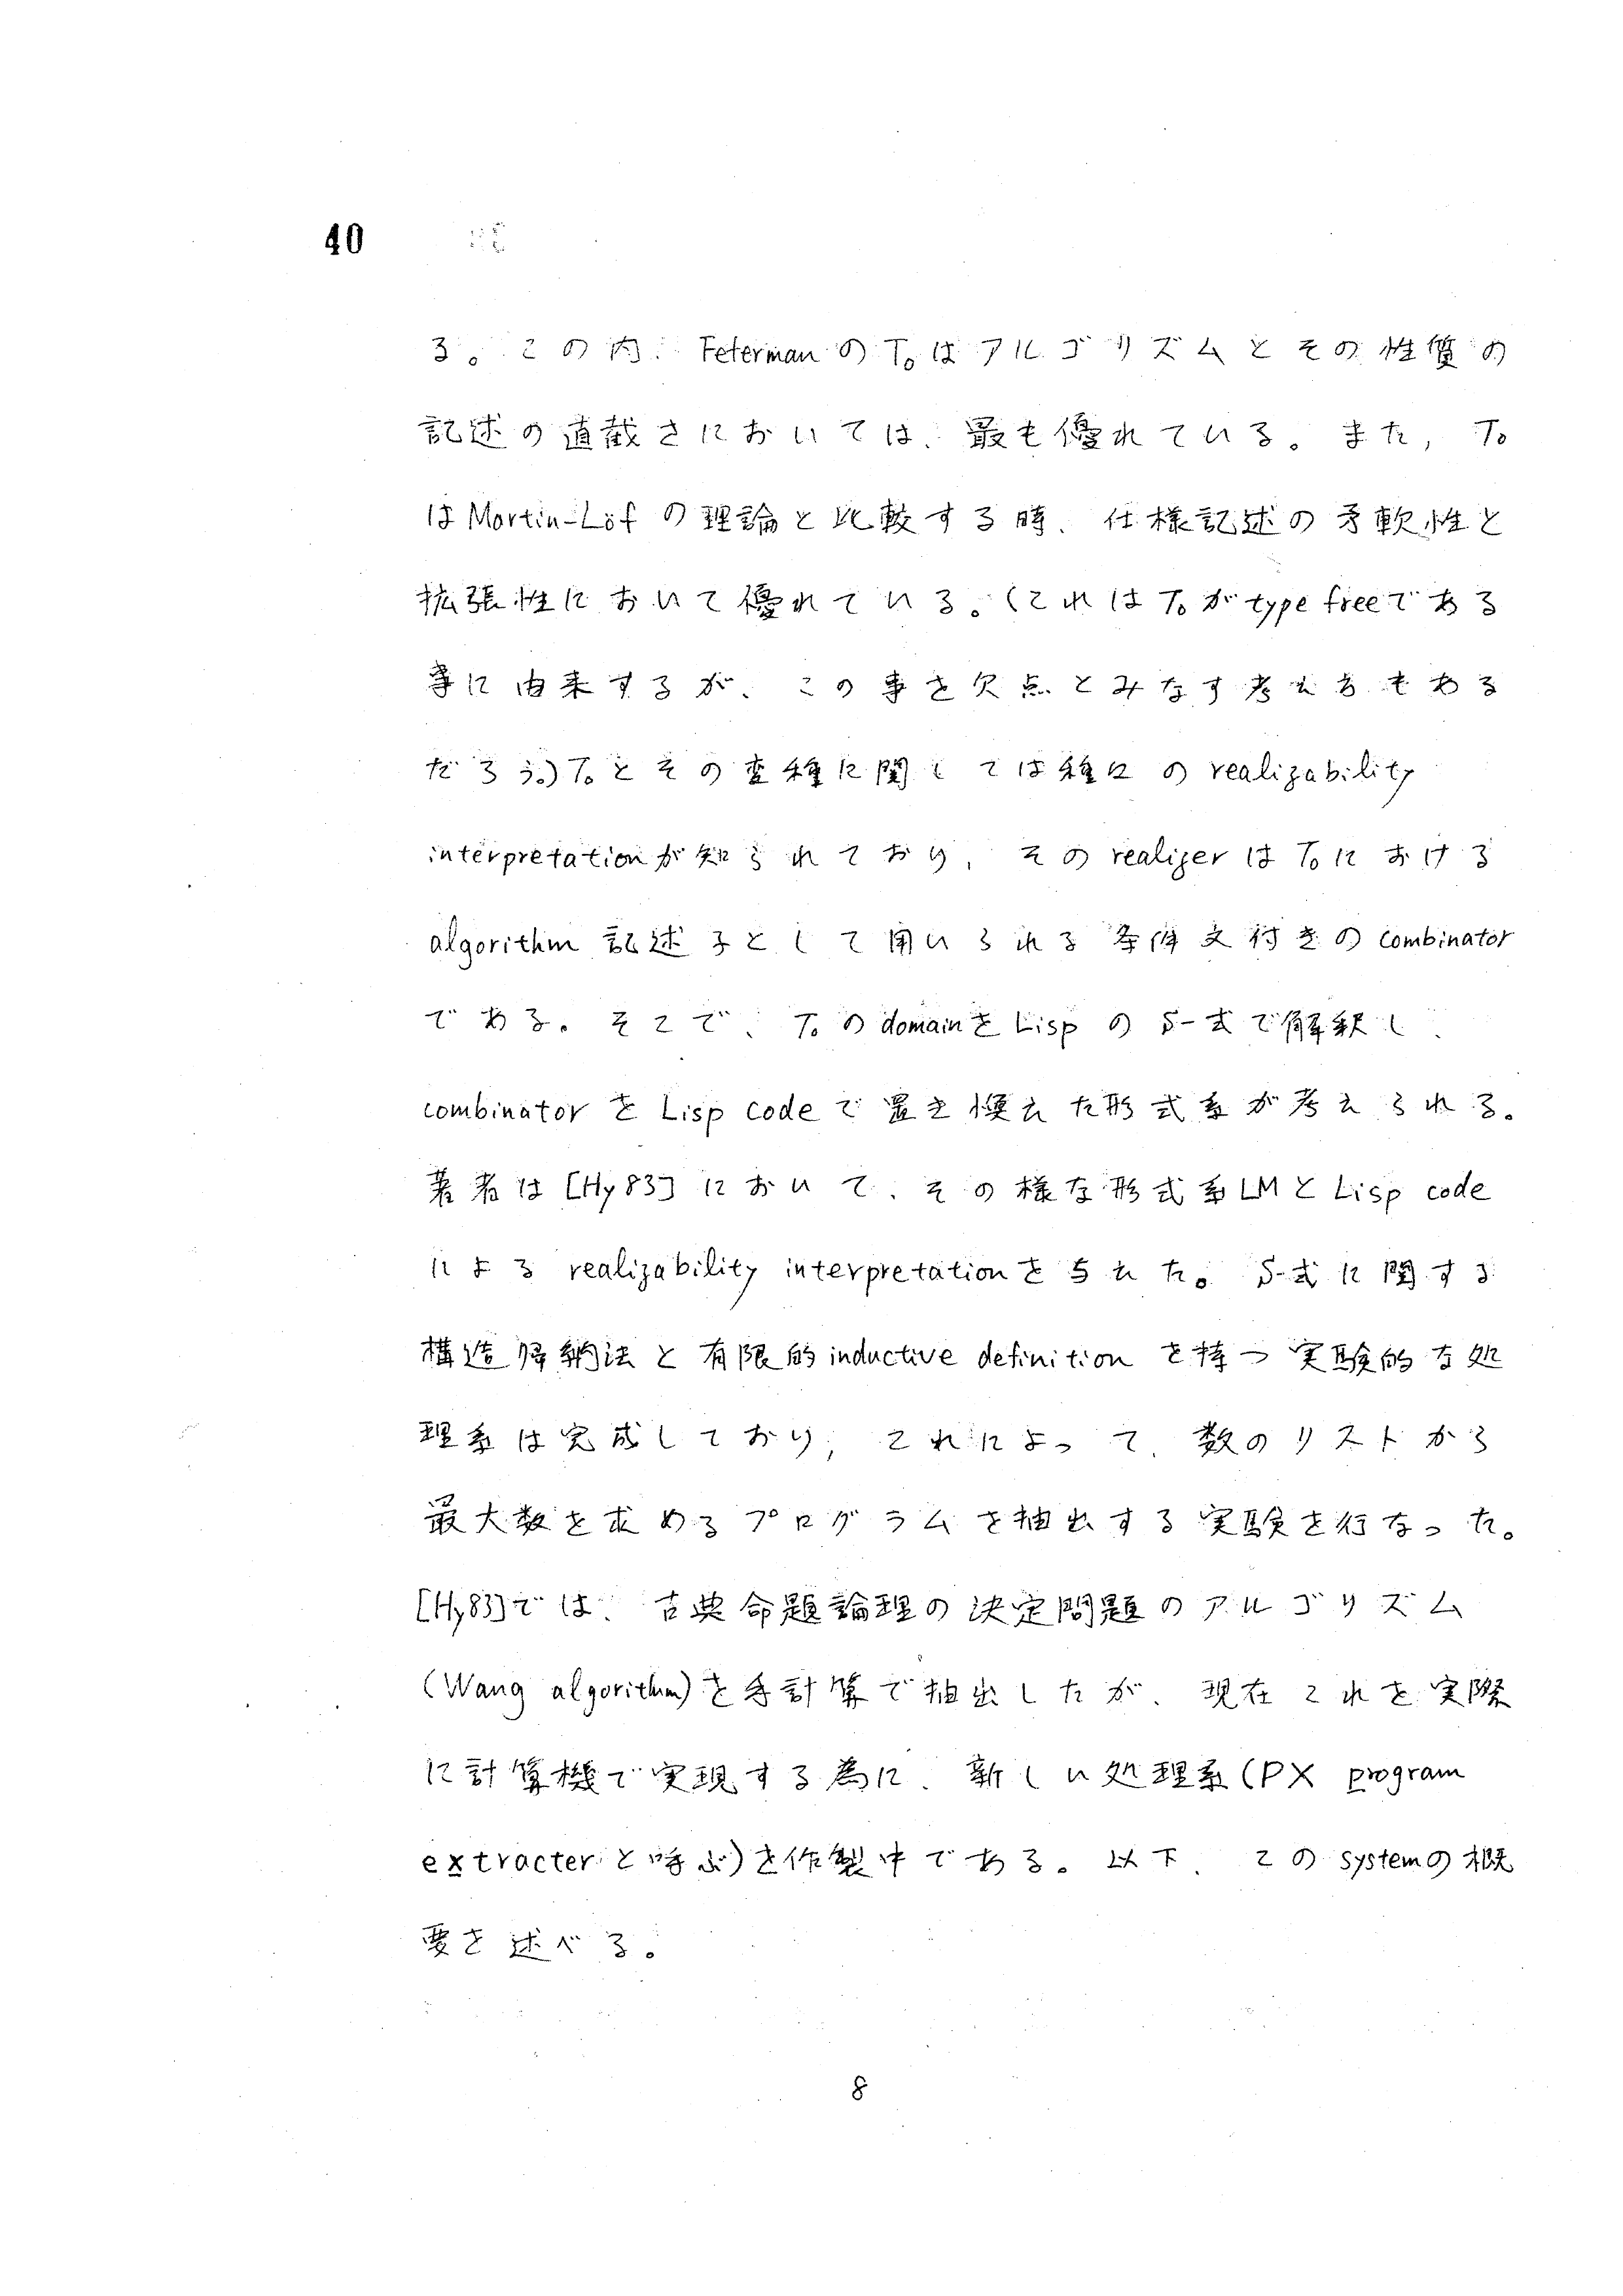 40
る。この内、FefermanのT₀はアルゴリズムとその性質の
記述の直截さにおいては、最も優れている。また, T₀
はMartin-Löfの理論と比較する時、仕様記述の柔軟性と
拡張性において優れている。(これはT₀がtype freeである
事に由来するが、この事を欠点とみなす考え方もある
だろう。)T₀とその変種に関しては種々のrealizability
interpretationが知られており、そのrealizerはT₀における
algorithm記述子として用いられる条件文付きのcombinator
である。そこで、T₀のdomainをLispのS-式で解釈し、
combinatorをLisp codeで置き換えた形式系が考えられる。
著者は[Hy83]において、その様な形式系LMとLisp code
によるrealizability interpretationを与えた。S-式に関する
構造帰納法と有限的inductive definitionを持つ実験的な処
理系は完成しており, これによって、数のリストから
最大数を求めるプログラムを抽出する実験を行なった。
[Hy83]では、古典命題論理の決定問題のアルゴリズム
(Wang algorithm)を手計算で抽出したが、現在これを実際
に計算機で実現する為に、新しい処理系(PX program
extracterと呼ぶ)を作製中である。以下、このsystemの概
要を述べる。
8